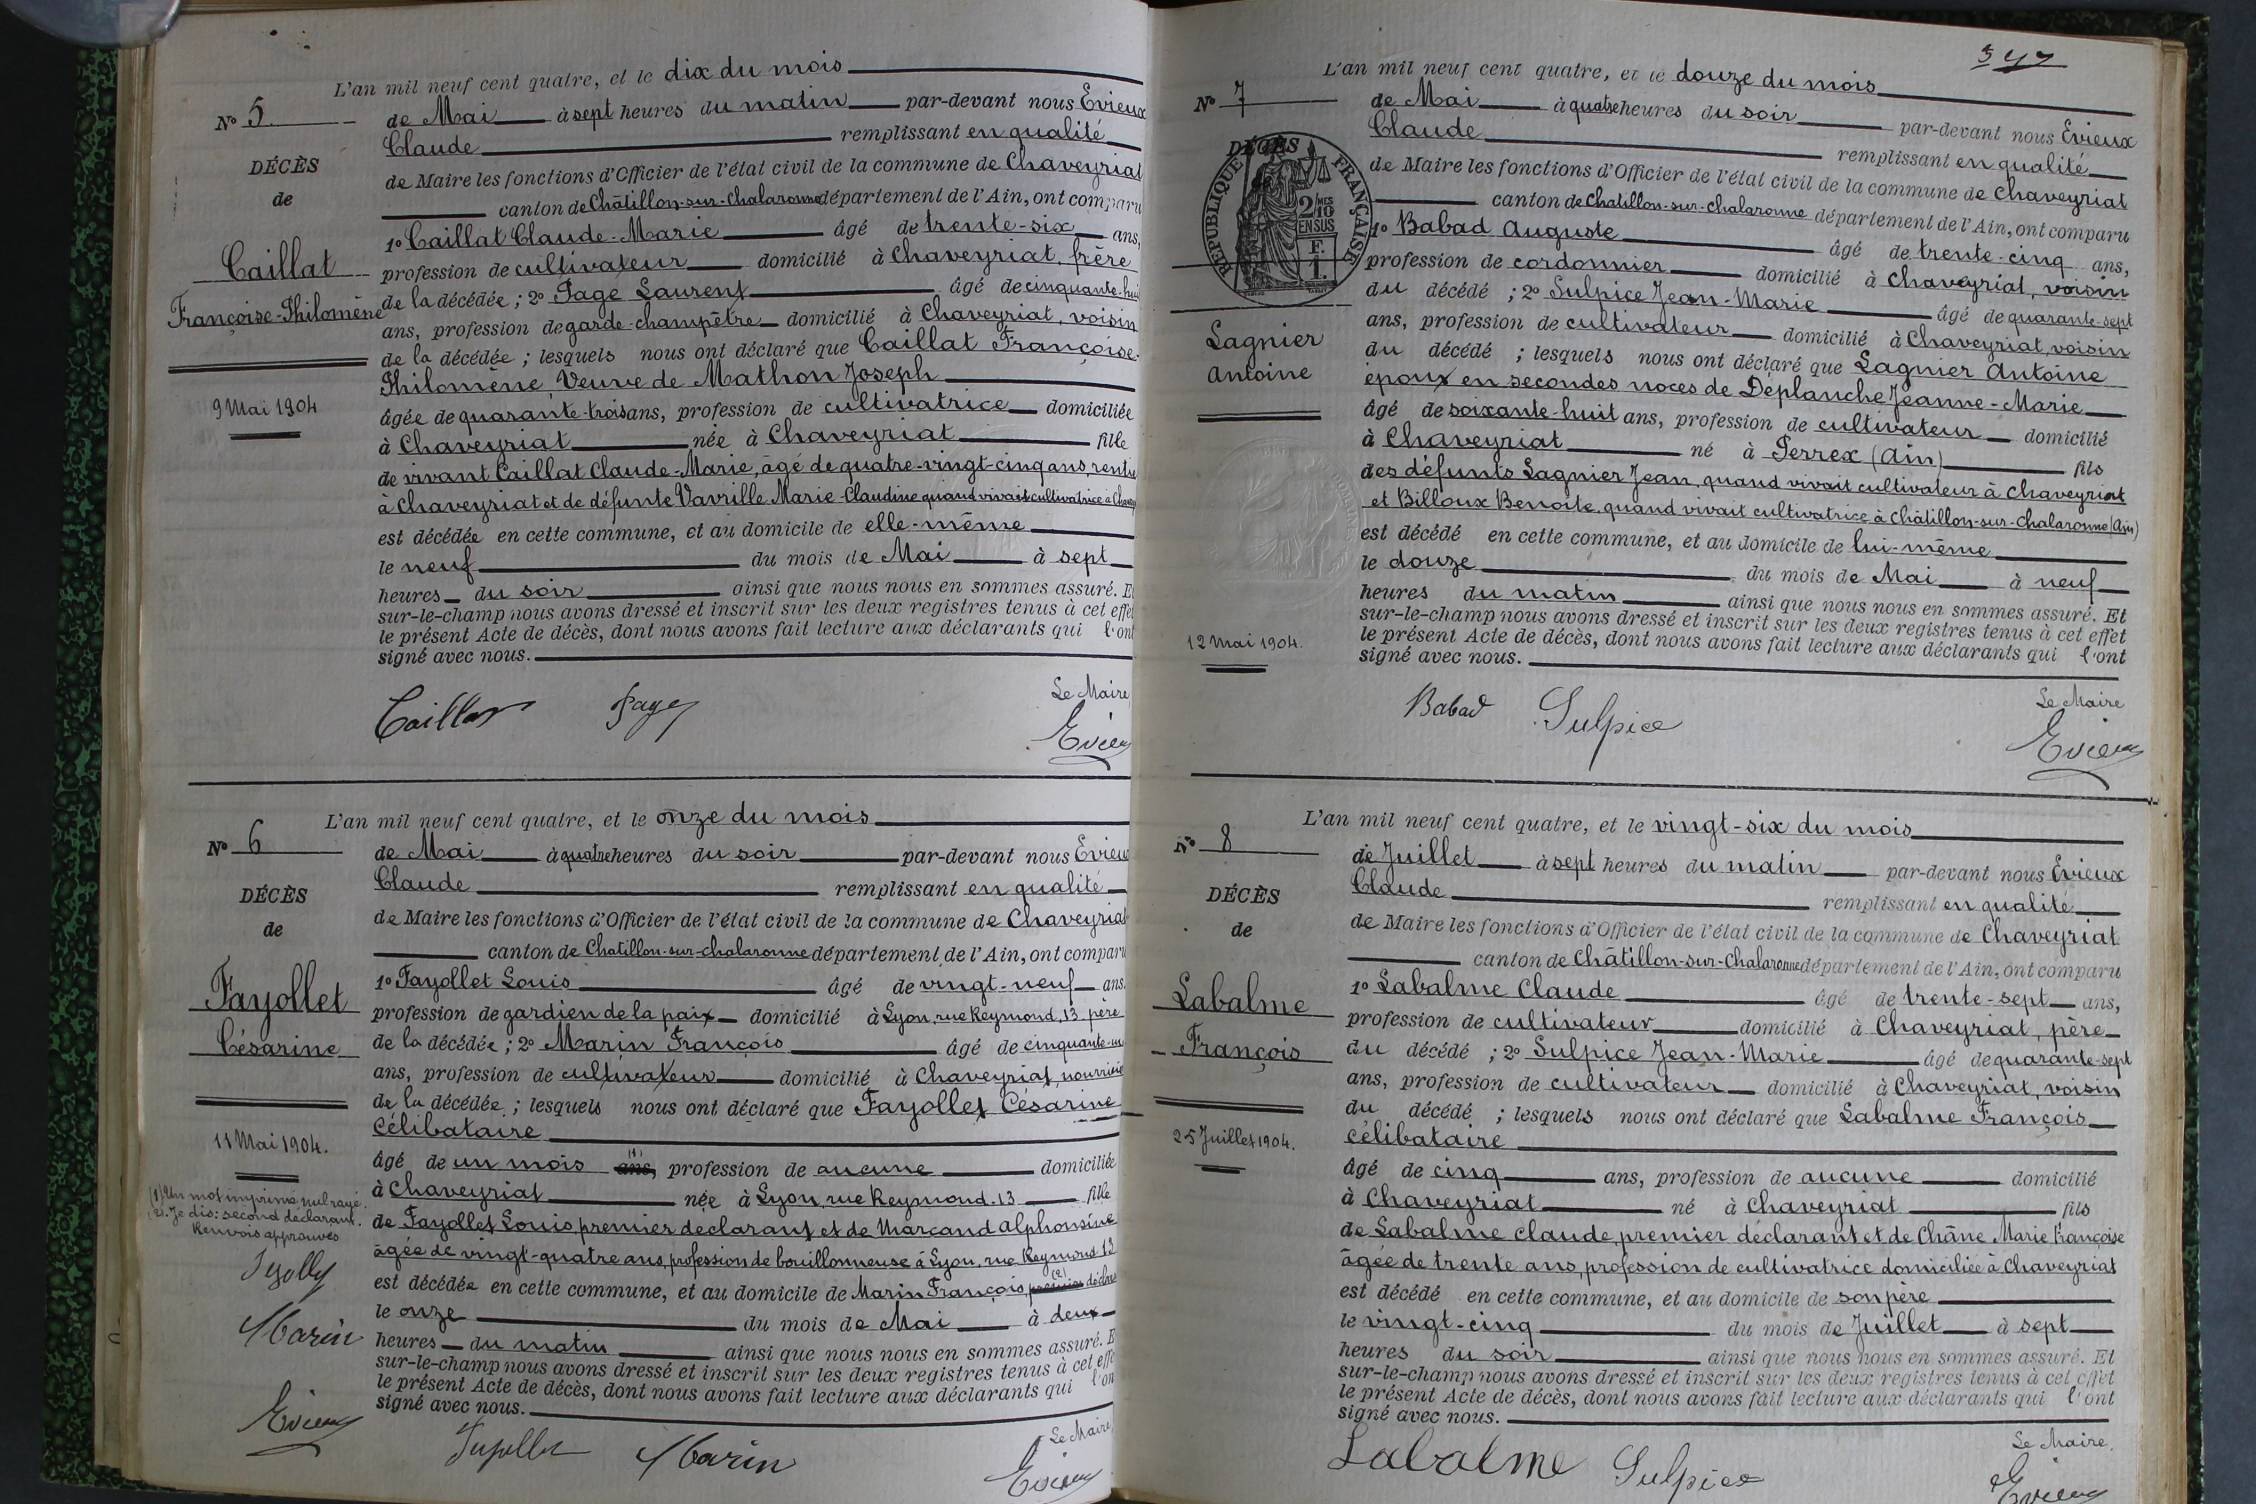 L'an mil neuf cent quatre, et le dix du mois
N° 5
de Mai à sept heures du matin par-devant nous Evieux
Claude remplissant en qualité
DÉCÈS
de Maire les fonctions d'Officier de l'état civil de la commune de Chaveyriat
de
canton de Châtillon-sur-Chalaronne département de l'Ain, ont comparu
1° Caillat Claude-Marie âgé de trente-six ans,
Caillat
profession de cultivateur domicilié à Chaveyriat, frère
Françoise-Philomène
de la décédée ; 2° Page Laurent âgé de cinquante-huit
ans, profession de garde-champêtre domicilié à Chaveyriat, voisin
de la décédée ; lesquels nous ont déclaré que Caillat Françoise-
Philomène, Veuve de Mathon Joseph
9 Mai 1904
âgée de quarante-trois ans, profession de cultivatrice domiciliée
à Chaveyriat née à Chaveyriat fille
de vivant Caillat Claude-Marie, âgé de quatre-vingt-cinq ans, rentier
à Chaveyriat et de défunte Vavrille Marie-Claudine quand vivait cultivatrice à
est décédée en cette commune, et au domicile de elle-même
le neuf du mois de Mai à sept
heures du soir ainsi que nous nous en sommes assuré. Et
sur-le-champ nous avons dressé et inscrit sur les deux registres tenus à cet effet
le présent Acte de décès, dont nous avons fait lecture aux déclarants qui l'ont
signé avec nous.
Le Maire
Caillat Page Evieux
L'an mil neuf cent quatre, et le onze du mois
N° 6
de Mai à quatre heures du soir par-devant nous Evieux
Claude remplissant en qualité
DÉCÈS
de Maire les fonctions d'Officier de l'état civil de la commune de Chaveyriat
de
canton de Chatillon-sur-chalaronne département de l'Ain, ont comparu
1° Fayollet Louis âgé de vingt-neuf ans,
Fayollet
profession de gardien de la paix domicilié à Lyon, rue Reymond, 13, père
Césarine
de la décédée ; 2° Marin François âgé de cinquante-un
ans, profession de cultivateur domicilié à Chaveyriat, nourricier
de la décédée ; lesquels nous ont déclaré que Fayollet Césarine
célibataire
11 Mai 1904.
âgé de un mois (1) ans, profession de aucune domiciliée
à Chaveyriat née à Lyon, rue Reymond. 13 fille
(1) Un mot imprimé nul rayé.
(2) Je dis: second déclarant.
Renvois approuvés
de Fayollet Louis, premier déclarant et de Marcand Alphonsine
âgée de vingt-quatre ans, profession de bouillonneuse à Lyon, rue Reymond 13
est décédée en cette commune, et au domicile de Marin François, premier (2) déclarant
le onze du mois de Mai à deux
heures du matin ainsi que nous nous en sommes assuré. Et
sur-le-champ nous avons dressé et inscrit sur les deux registres tenus à cet effet
le présent Acte de décès, dont nous avons fait lecture aux déclarants qui l'ont
signé avec nous.
Marin
Evieux
Le Maire,
Fayollet Marin Evieux
347
L'an mil neuf cent quatre, et le douze du mois
N° 7
de Mai à quatre heures du soir par-devant nous Evieux
Claude remplissant en qualité
DÉCÈS
RÉPUBLIQUE FRANÇAISE
2 MES
10
EN SUS
F.
1.
de Maire les fonctions d'Officier de l'état civil de la commune de Chaveyriat
canton de Chatillon-sur-chalaronne département de l'Ain, ont comparu
1° Babad Auguste âgé de trente-cinq ans,
profession de cordonnier domicilié à Chaveyriat, voisin
du décédé ; 2° Sulpice Jean-Marie âgé de quarante-sept
ans, profession de cultivateur domicilié à Chaveyriat, voisin
Lagnier
Antoine
du décédé ; lesquels nous ont déclaré que Lagnier Antoine
époux en secondes noces de Déplanche Jeanne-Marie
âgé de soixante-huit ans, profession de cultivateur domicilié
à Chaveyriat né à Perrex (Ain) fils
des défunts Lagnier Jean, quand vivait cultivateur à Chaveyriat
et Billoux Benoite, quand vivait cultivatrice à Châtillon-sur-Chalaronne (Ain)
est décédé en cette commune, et au domicile de lui-même
le douze du mois de Mai à neuf
heures du matin ainsi que nous nous en sommes assuré. Et
sur-le-champ nous avons dressé et inscrit sur les deux registres tenus à cet effet
12 Mai 1904.
le présent Acte de décès, dont nous avons fait lecture aux déclarants qui l'ont
signé avec nous.
Le Maire
Babad Sulpice Evieux
L'an mil neuf cent quatre, et le vingt-six du mois
N° 8
de Juillet à sept heures du matin par-devant nous Evieux
Claude remplissant en qualité
DÉCÈS
de Maire les fonctions d'Officier de l'état civil de la commune de Chaveyriat
de
canton de Châtillon-sur-Chalaronne département de l'Ain, ont comparu
1° Labalme Claude âgé de trente-sept ans,
Labalme
profession de cultivateur domicilié à Chaveyriat, père
François
du décédé ; 2° Sulpice Jean-Marie âgé de quarante-sept
ans, profession de cultivateur domicilié à Chaveyriat, voisin
du décédé ; lesquels nous ont déclaré que Labalme François
25 Juillet 1904.
célibataire
âgé de cinq ans, profession de aucune domicilié
à Chaveyriat né à Chaveyriat fils
de Labalme Claude, premier déclarant et de Châne Marie Françoise
âgée de trente ans, profession de cultivatrice domiciliée à Chaveyriat
est décédé en cette commune, et au domicile de son père
le vingt-cinq du mois de Juillet à sept
heures du soir ainsi que nous nous en sommes assuré. Et
sur-le-champ nous avons dressé et inscrit sur les deux registres tenus à cet effet
le présent Acte de décès, dont nous avons fait lecture aux déclarants qui l'ont
signé avec nous.
Le Maire,
Labalme Sulpice Evieux